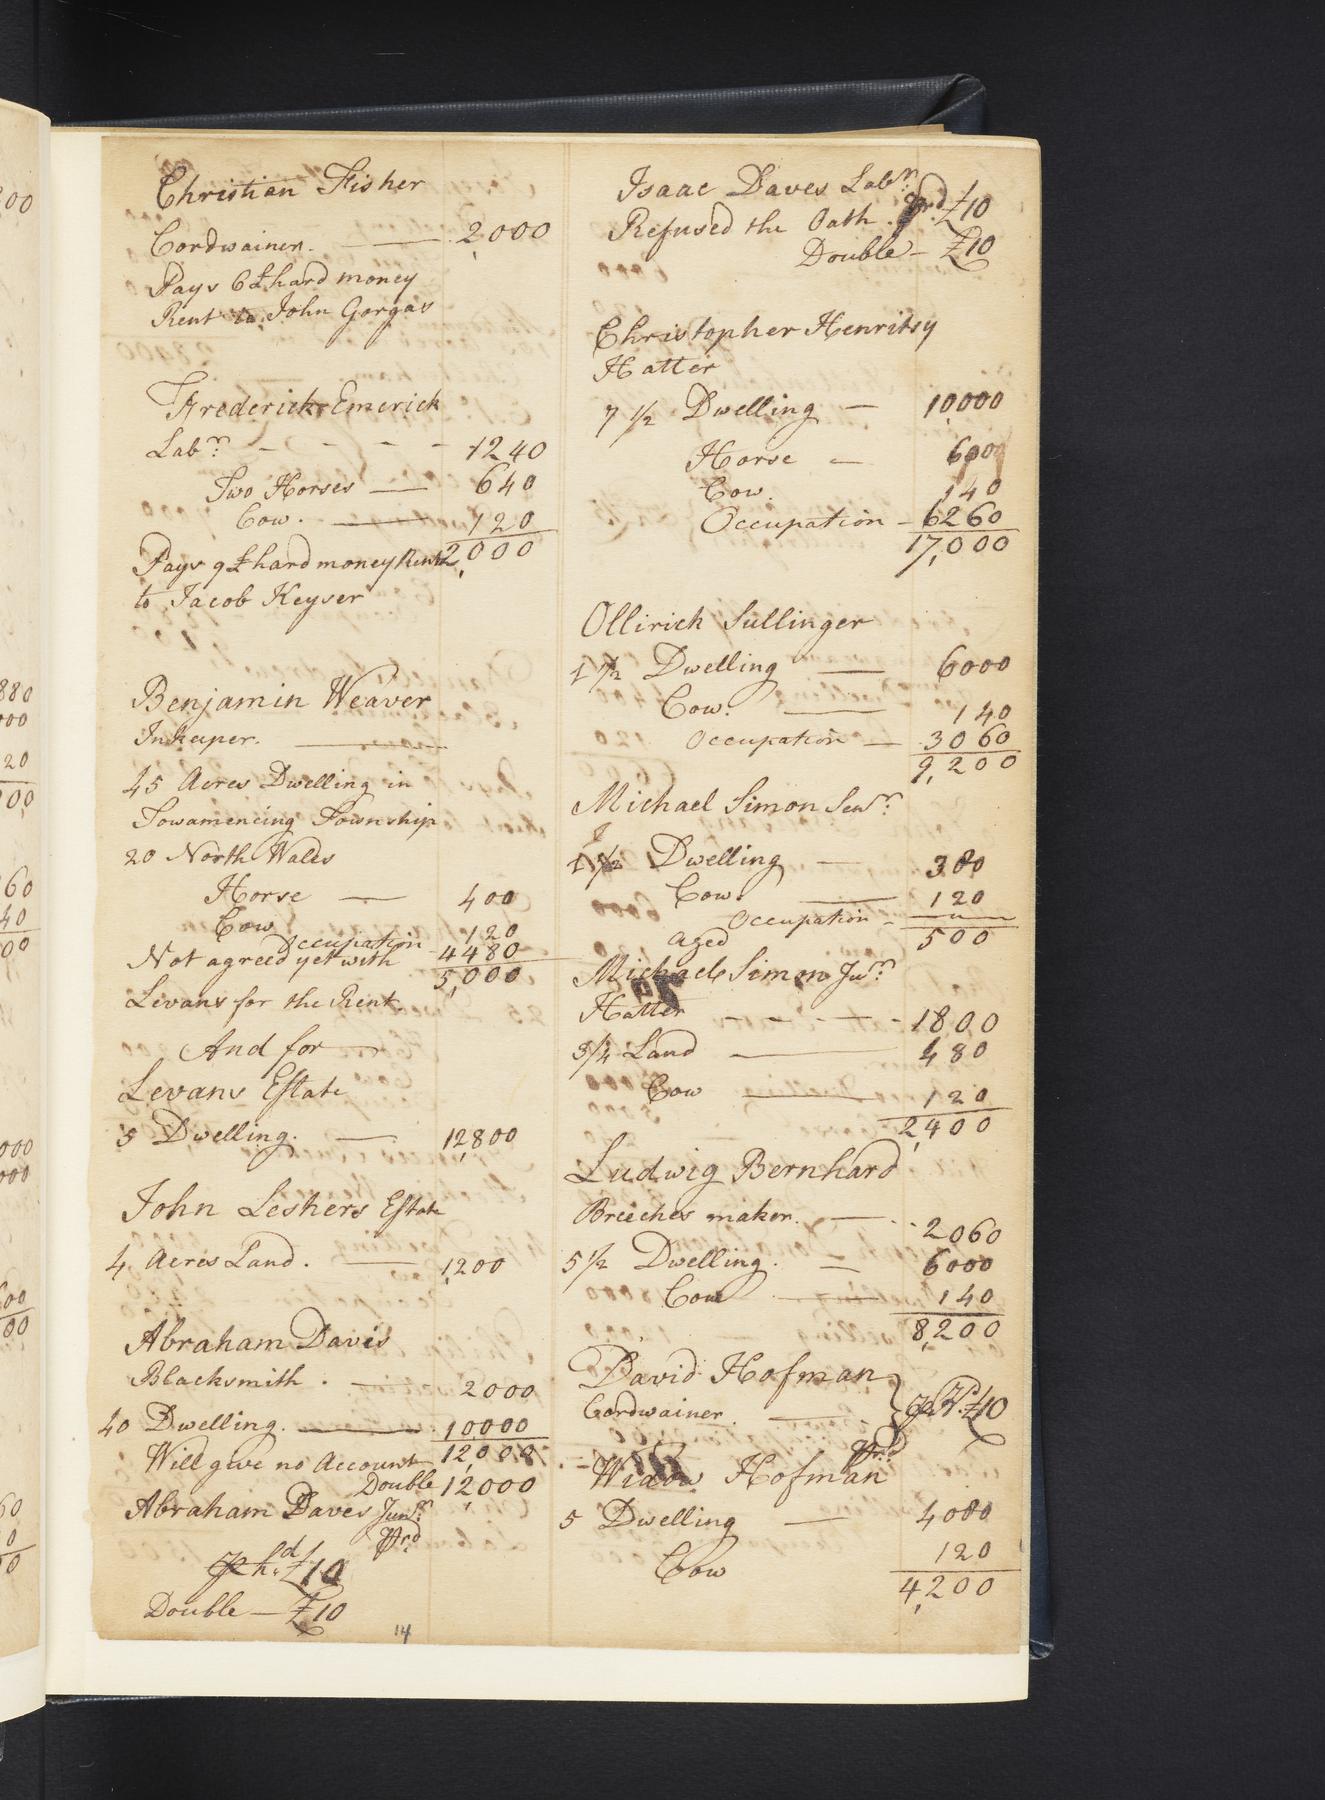 Christian Fisher
Cordwainer. — 2,000
Pays 6 £ hard money
Rent to John Gorgas
Frederick Emerick
Labr. - - - - 1240
Two Horses — 640
Cow. — 120
Pays 9 £ hard money Rent 2,000
to Jacob Keyser
Benjamin Weaver
Inkeeper. —
45 Acres Dwelling in
Towamencing Township
20 North Wales
Horse — 400
Cow 120
Occupation 4480
Not agreed yet with 5,000
Levans for the Rent
And for —
Levans Estate
5 Dwelling. — 12,800
John Leshers Estate
4 Acres Land. — 1,200
Abraham Davis
Blacksmith. — 2000
40 Dwelling. — 10,000
Will give no Account 12,000
Double 12,000
Abraham Daves Junr.
£10
Double — £10
14
Isaac Daves Labr.
Refused the Oath. £10
Double — £10
Christopher Henritsy
Hatter
7 1/2 Dwelling — 10,000
Horse — 600
Cow. 140
Occupation — 6260
17,000
Ollirich Sullinger
1 1/2 Dwelling — 6000
Cow. — 140
Occupation — 3060
9,200
Michael Simon Senr.
Dwelling — 380
Cow. — 120
Occupation -
Aged 500
Michael Simon Junr.
Hatter - - - - 1800
3/4 Land — 480
Cow — 120
2,400
Ludwig Bernhard
Breeches maker. — 2060
5 1/2 Dwelling. — 6000
Cow — 140
8,200
David Hofman
Cordwainer. — } £10
Widow Hofman
5 Dwelling — 4080
Cow 120
4,200